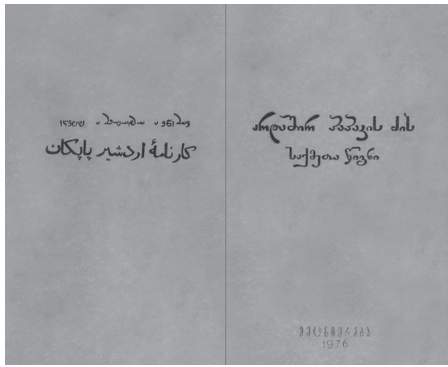 کارنامهٔ اردشیر پاپکان
არდაშირ პაპაკის ძის
საქმეთა წიგნი
მეცნიერება
1976